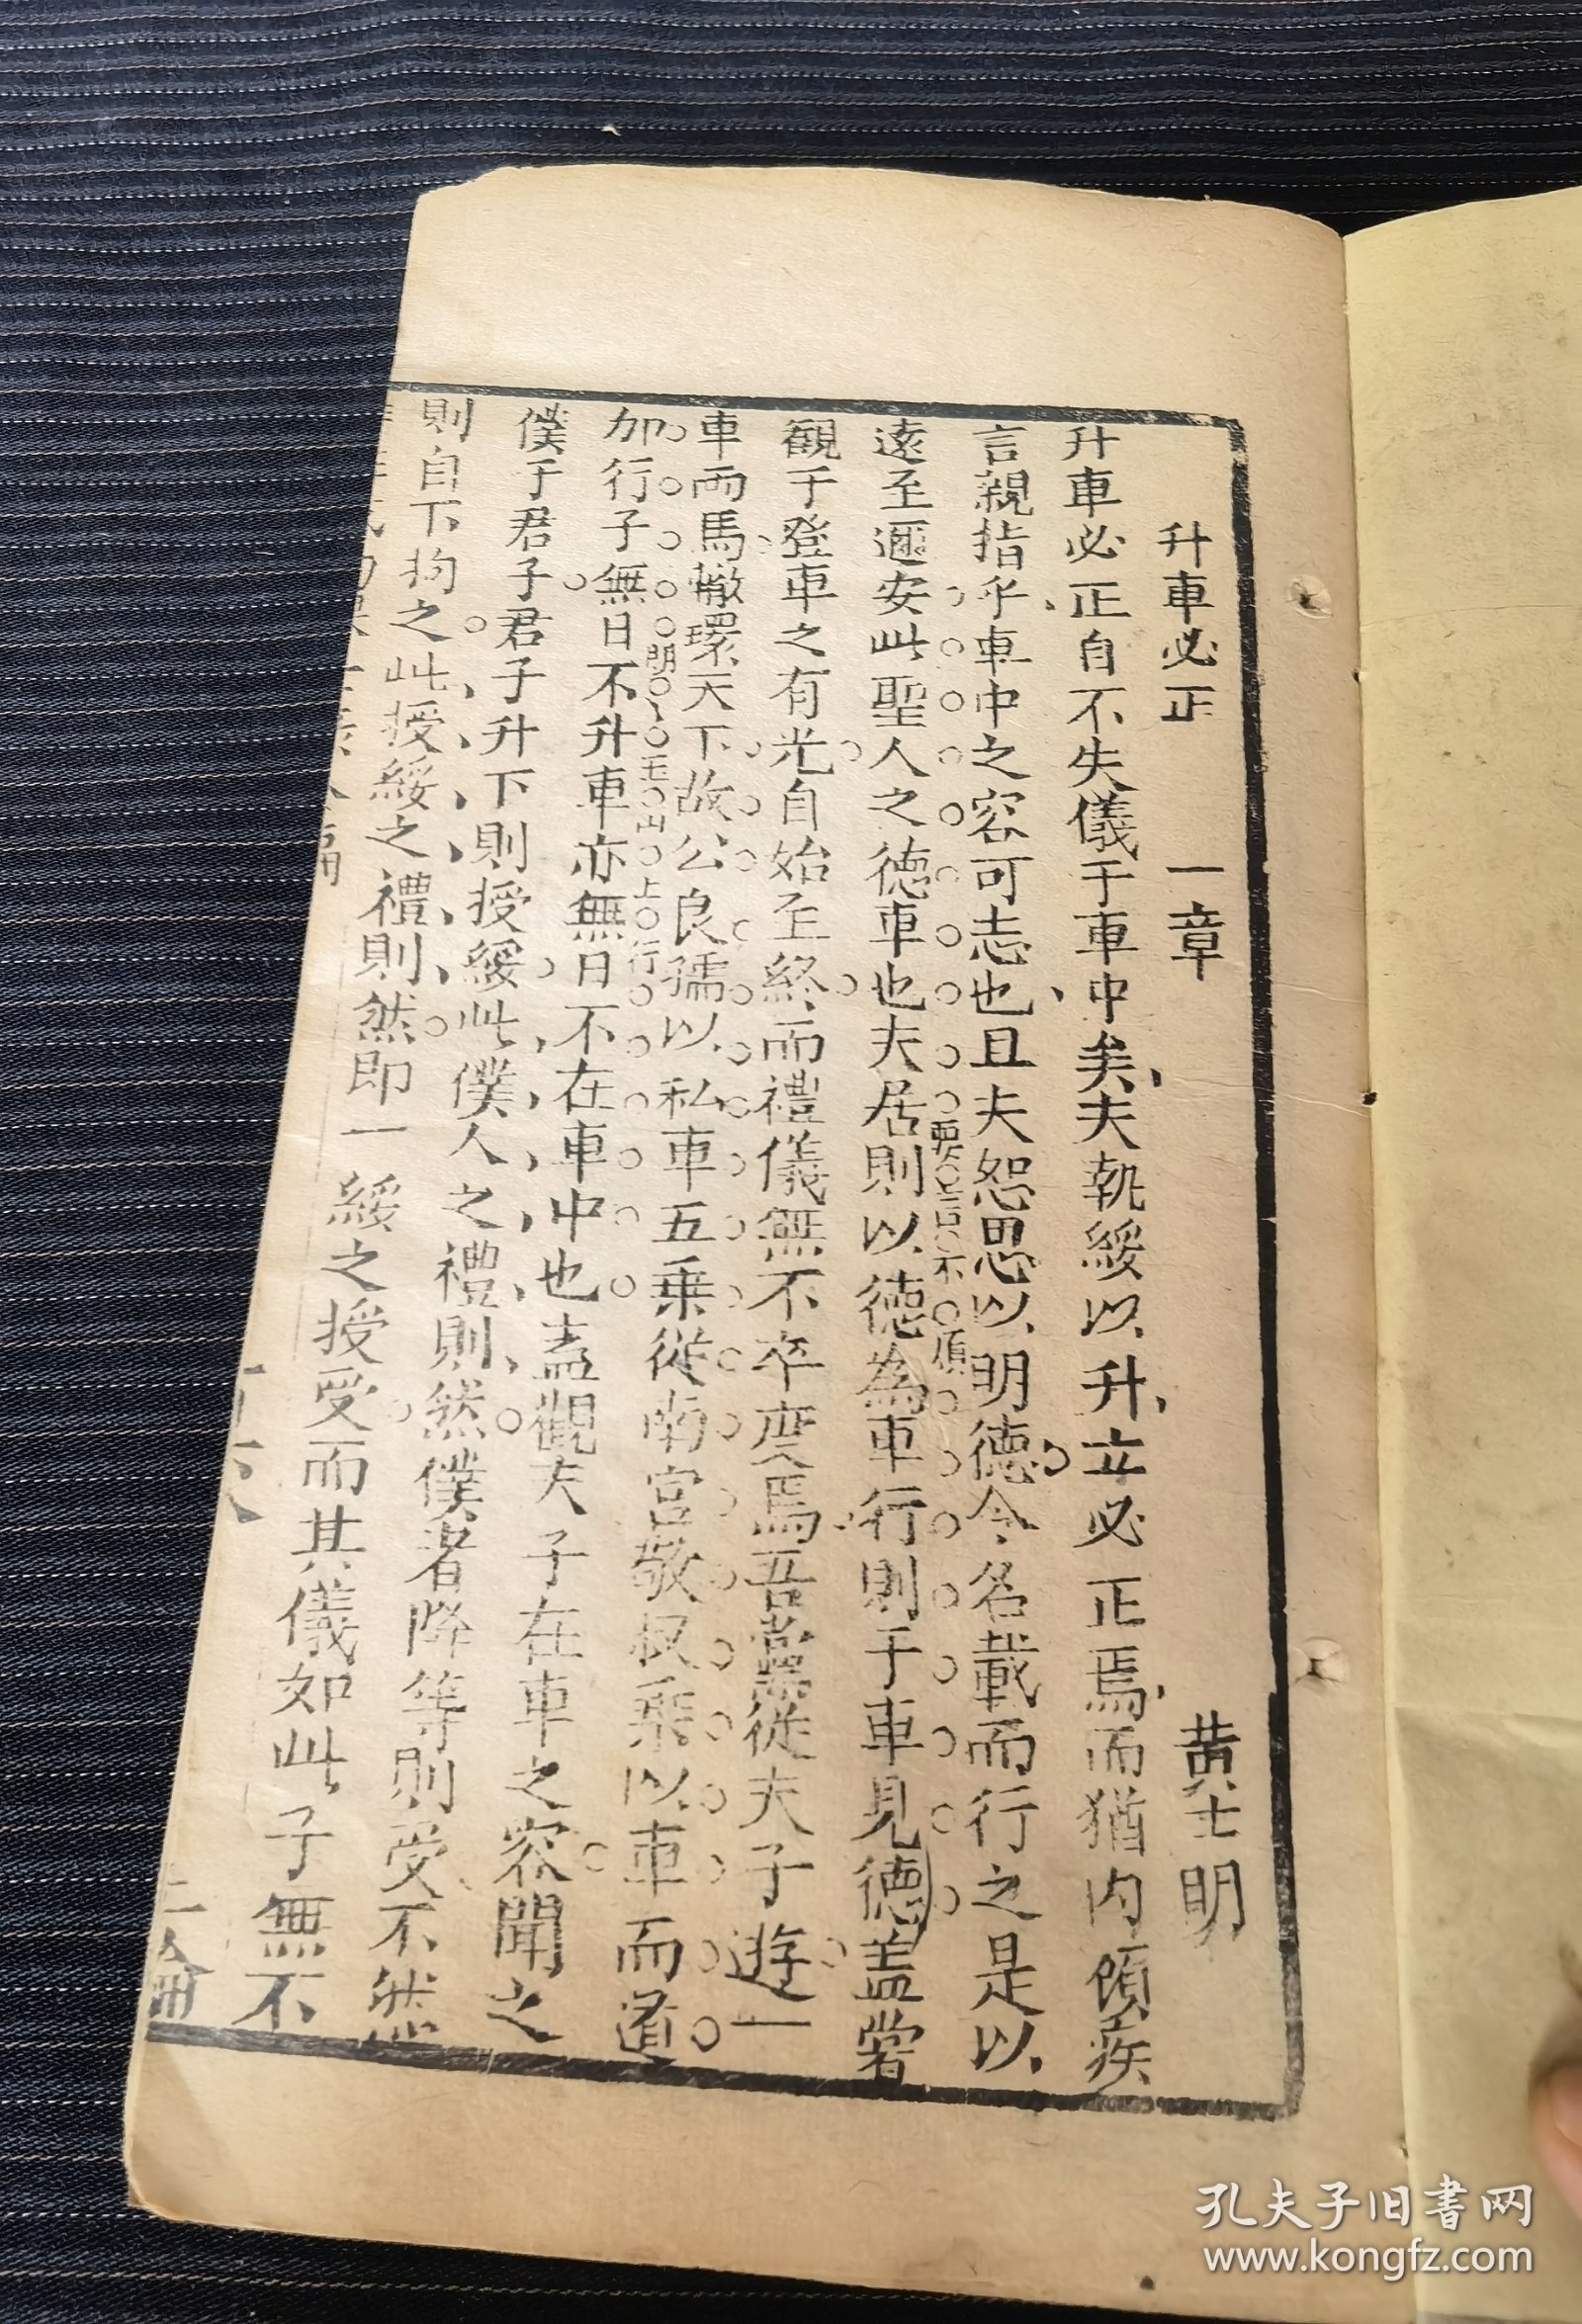 升車必正 一章 黄士明
升車必正自不失儀于車中矣夫執綏以升立必正焉而猶内顧疾
言親指乎車中之容可志也且夫恕思以明德令名載而行之是以
遠至邇安此聖人之德車也夫居則以德為車行則于車見德盖嘗
要言不煩
觀于登車之有光自始至終而禮儀無不卒度焉吾黨從夫子遊一
車兩馬轍環天下故公良孺以私車五乗從南宫敬叔乘以車而道
加行子無日不升車亦無日不在車中也盖觀夫子在車之容聞之
僕于君子君子升下則授綏此僕人之禮則然僕者降等則受不然
則自下拘之此授綏之禮則然即一綏之授受而其儀如此子無不
孔夫子旧書网
www.kongfz.com